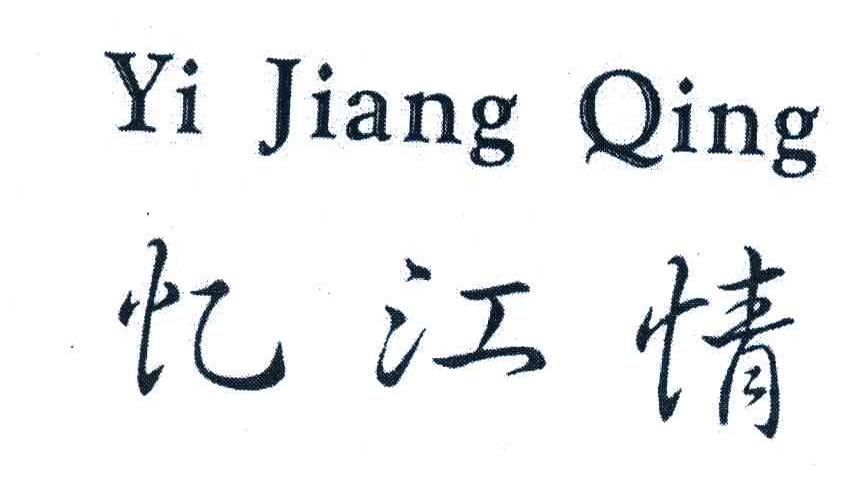 Yi Jiang Qing
忆江情